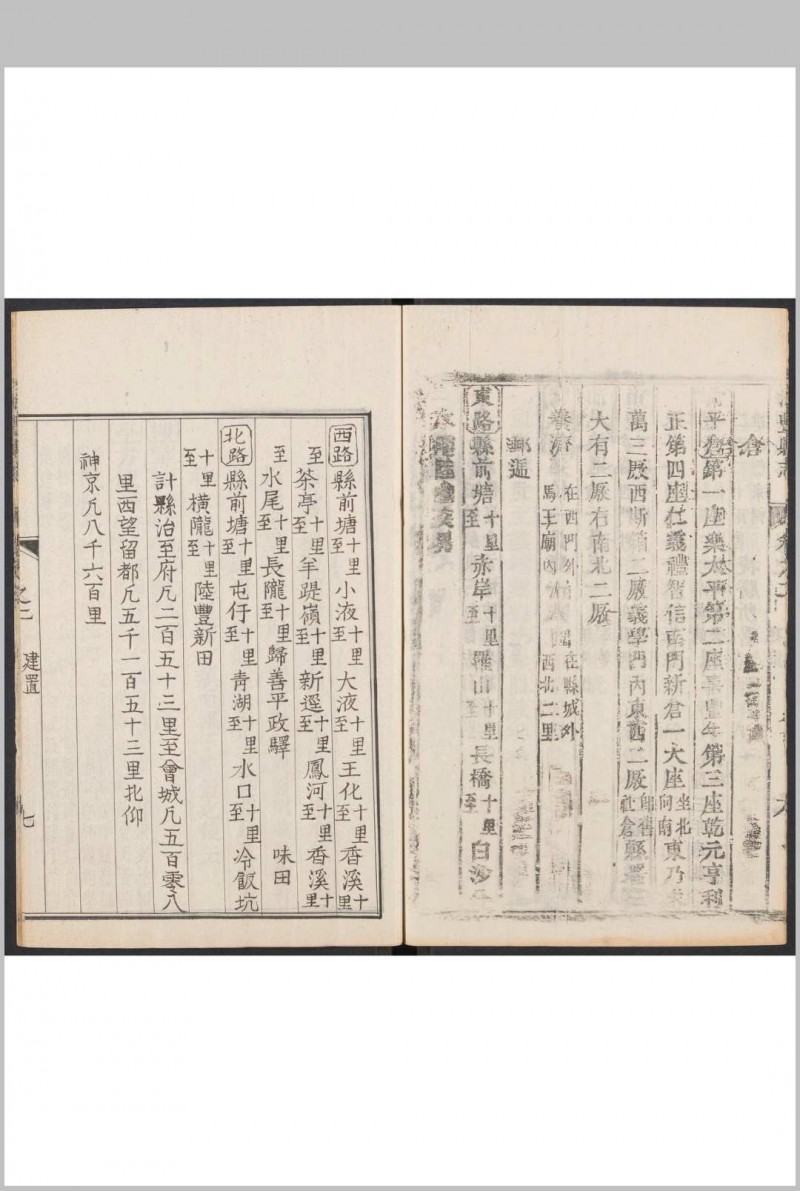 豐縣志
倉
平倉第一座樂太平第二座喜豐年第三座乾元亨利
正第四座仁義禮智信南門新倉一大座坐北向南東乃
萬三厫西斯箱二厫義學門內東西二厫即舊社倉縣署
大有二厫右南北二厫
養濟在西門外馬王廟內 在縣城外西北二里
郵遞
東路縣前塘十里至赤岸十里至羅山十里至長橋十里至白沙
西路縣前塘十里至小液十里至大液十里至王化十里至香溪十里
至茶亭十里至羊蹄嶺十里至新逕十里至鳳河十里至香溪十里
至水尾十里至長隴十里至歸善平政驛 味田
北路縣前塘十里至屯仔十里至青湖十里至水口十里至冷飯坑
十里至橫隴十里至陸豐新田
計縣治至府凡二百五十三里至會城凡五百零八
里西望留都凡五千一百五十三里北仰
神京凡八千六百里
建置
七